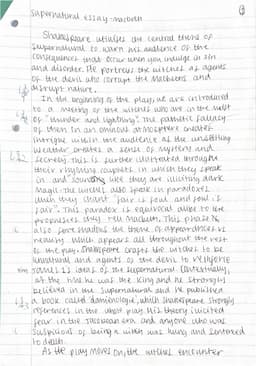 Supernatural essay - macbeth
Shakespeare utilises the central theme of
supernatural to warn his audience of the
consequences that occur when you indulge in sin
and disorder. He portrays the witches as agents
of the devil who corrupt the Macbeths and
disrupt nature.
In the beginning of the play, we are introduced
to a meeting of the witches who are in the midst
of "thunder and lightning". The pathetic fallacy
of them in an ominous atmosphere creates
intrigue within the audience as the unsettling
weather creates a sense of mystery and
secrecy. This is further illustrated through
their rhyming couplets in which they speak
in and sounding like they are inciting dark
magic. The witches also speak in paradoxes
when they chant "fair is foul and foul is
fair". This paradox is equivocal alike to the
prophecies they tell Macbeth. This phrase
also foreshadows the theme of appearances vs
reality which appears all throughout the rest
of the play. Shakespeare crafts the witches to be
unnatural and agents of the devil to reinforce
James I's ideas of the supernatural. Contextually,
at the time he was the King and he strongly
believed in the supernatural and he published
a book called daemonologie, which Shakespeare strongly
references in the whole play. His theory incited
fear in the Jacobean era and anyone who was
suspicious of being a witch was hung and sentenced
to death.
As the play moves on, the witches encounter